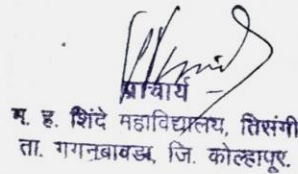 प्राचार्य
म. ह. शिंदे महाविद्यालय, तिसंगी
ता. गगनबावडा, जि. कोल्हापूर.